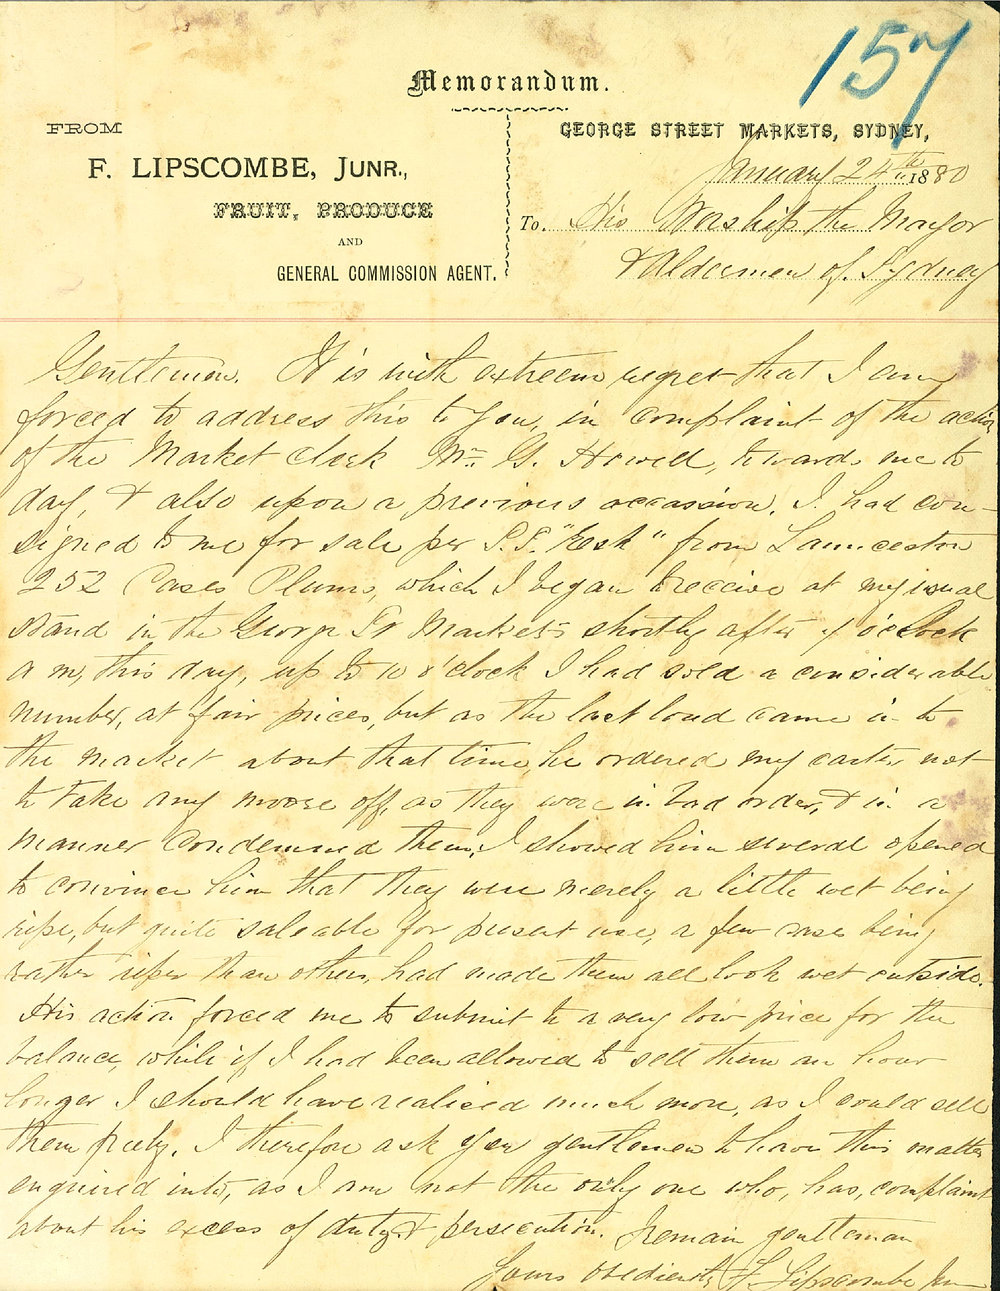 157
Memorandum.
FROM
F. LIPSCOMBE, JUNR.,
FRUIT, PRODUCE
AND
GENERAL COMMISSION AGENT.
GEORGE STREET MARKETS, SYDNEY,
January 24th 1880
To. His Worship the Mayor
& Aldermen of Sydney
Gentlemen. It is with extreem regret that I am
forced to address this to you, in complaint of the action
of the Market Clerk Mr. G. Howell, towards me to
day, & also upon a previous occassion. I had con-
signed to me for sale per S.S. "Esk" from Launceston
252 Cases Plums, which I began to receive at my usual
stand in the George St Markets shortly after 4 o'clock
a m, this day, up to 10 o'clock I had sold a considerable
number, at fair prices, but as the last load came in to
the market about that time, he ordered my carter not
to take any moore off, as they were in bad order, & in a
manner condemned them; I showed him several opened
to convince him that they were merely a little wet being
ripe, but quite saleable for present use, a few cases being
rather riper than others, had made them all look wet outside.
His action forced me to submit to a very low price for the
balance, while if I had been allowed to sell them an hour
longer I should have realised much more, as I could sell
them freely. I therefore ask you gentlemen to have this matter
enquired into, as I am not the only one who, has, complaint
about his excess of duty & persecution. I remain gentlemen
Yours obediently F. Lipscombe Jun